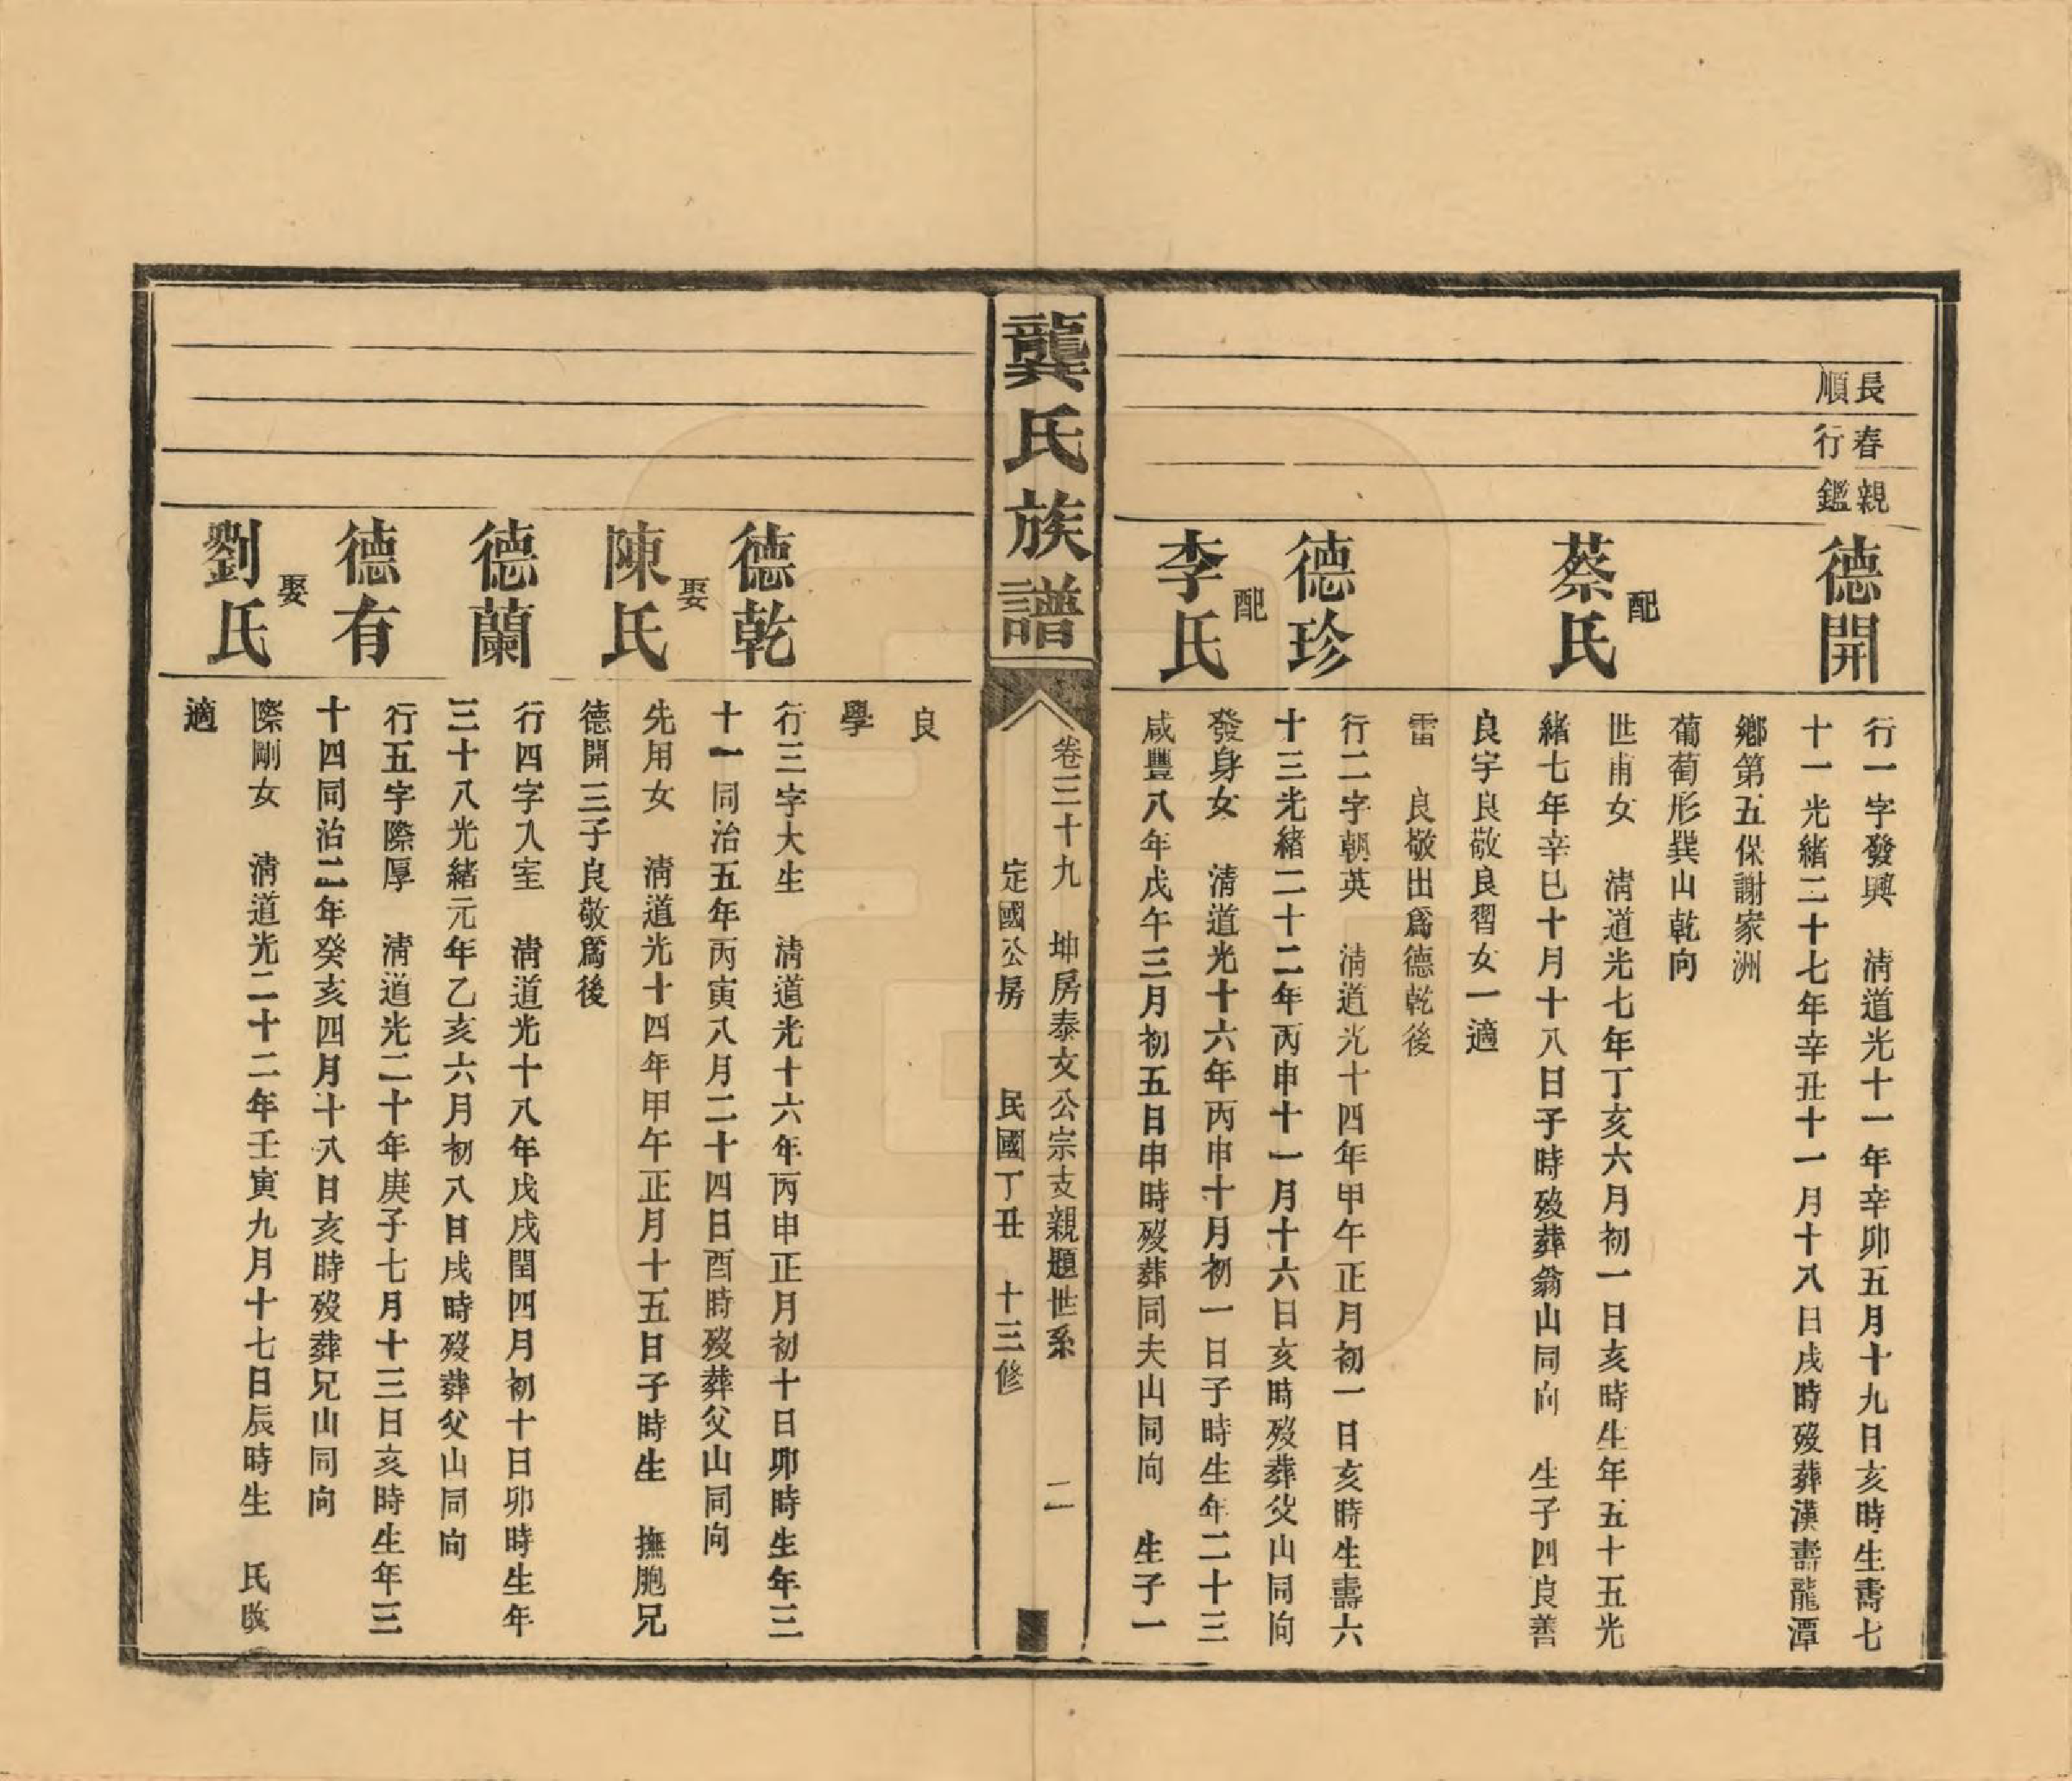 長順
春行
親鑑
德開
行一字發興　清道光十一年辛卯五月十九日亥時生壽七
十一光緒二十七年辛丑十一月十八日戌時歿葬漢壽龍潭
鄉第五保謝家洲
葡萄形巽山乾向
配
蔡氏
世甫女　清道光七年丁亥六月初一日亥時生年五十五光
緒七年辛巳十月十八日子時歿葬翁山同向　生子四良善
良字良敬良習女一適
雷　良敬出爲德乾後
德珍
行二字朝英　清道光十四年甲午正月初一日亥時生壽六
十三光緒二十二年丙申十一月十六日亥時歿葬父山同向
配
李氏
發身女　清道光十六年丙申十月初一日子時生年二十三
咸豐八年戊午三月初五日申時歿葬同夫山同向　生子一
龔氏族譜
卷三十九　坤房泰文公宗支親題世系　二
定國公房　民國丁丑　十三修
良
學
德乾
行三字大生　清道光十六年丙申正月初十日卯時生年三
十一同治五年丙寅八月二十四日酉時歿葬父山同向
娶
陳氏
先用女　清道光十四年甲午正月十五日子時生　撫胞兄
德開三子良敬爲後
德蘭
行四字入室　清道光十八年戊戌閏四月初十日卯時生年
三十八光緒元年乙亥六月初八日戌時歿葬父山同向
德有
行五字際厚　清道光二十年庚子七月十三日亥時生年三
十四同治二年癸亥四月十八日亥時歿葬兄山同向
娶
劉氏
際剛女　清道光二十二年壬寅九月十七日辰時生　氏改
適